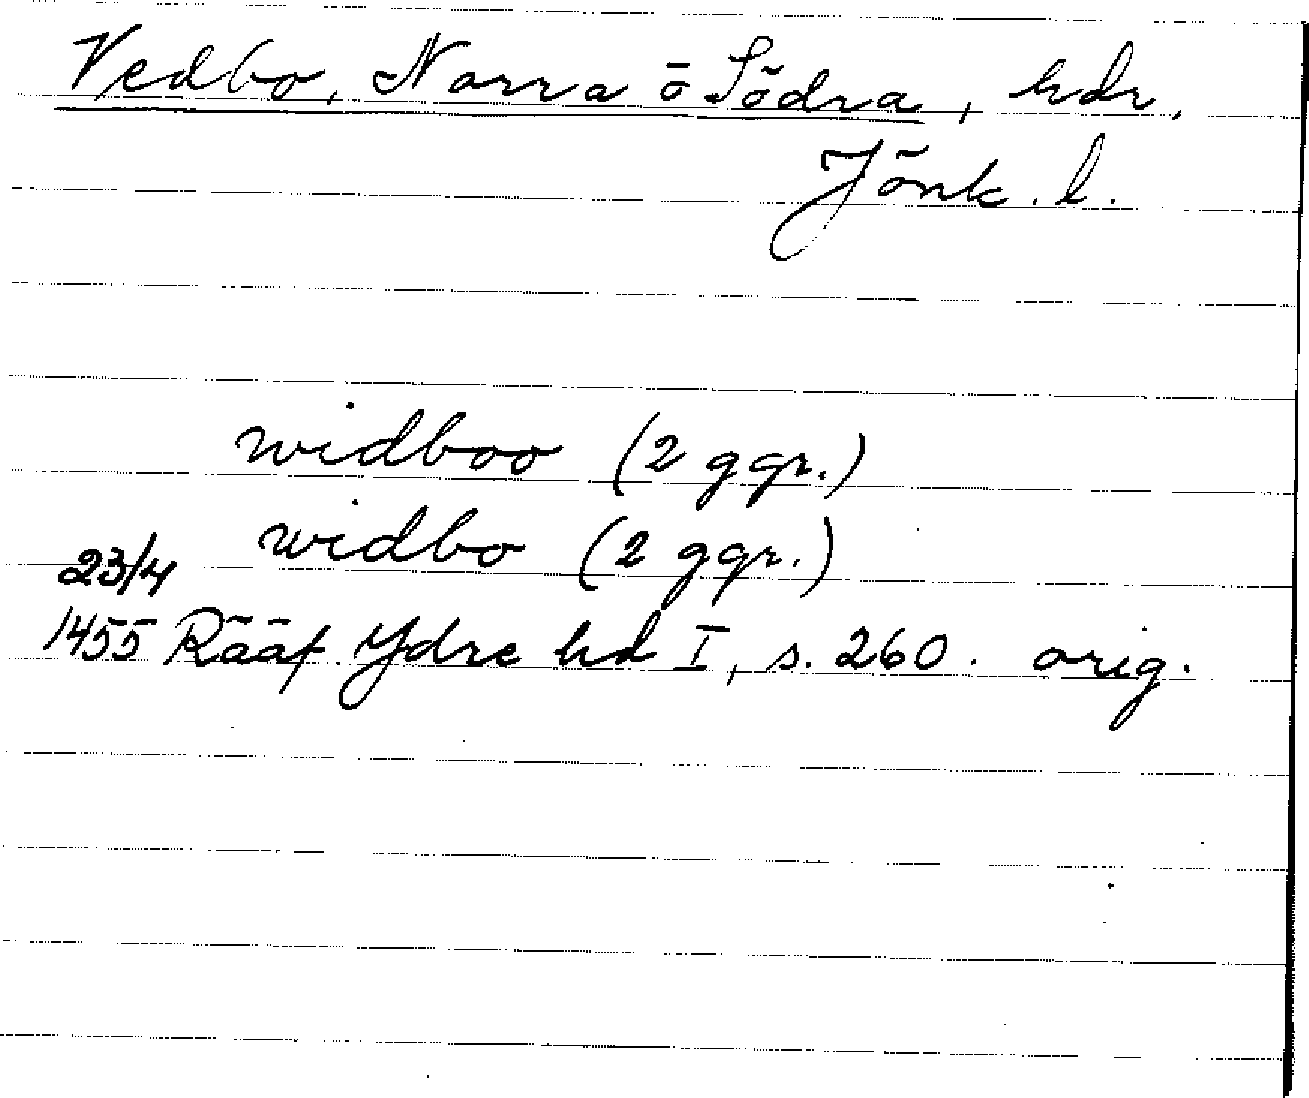 Vedbo, Norra o Södra, hdr,
Jönk. l.
widboo (2 ggr.)
widbo (2 ggr.)
23/4
1455 Rääf Ydre hd I, s. 260. orig.